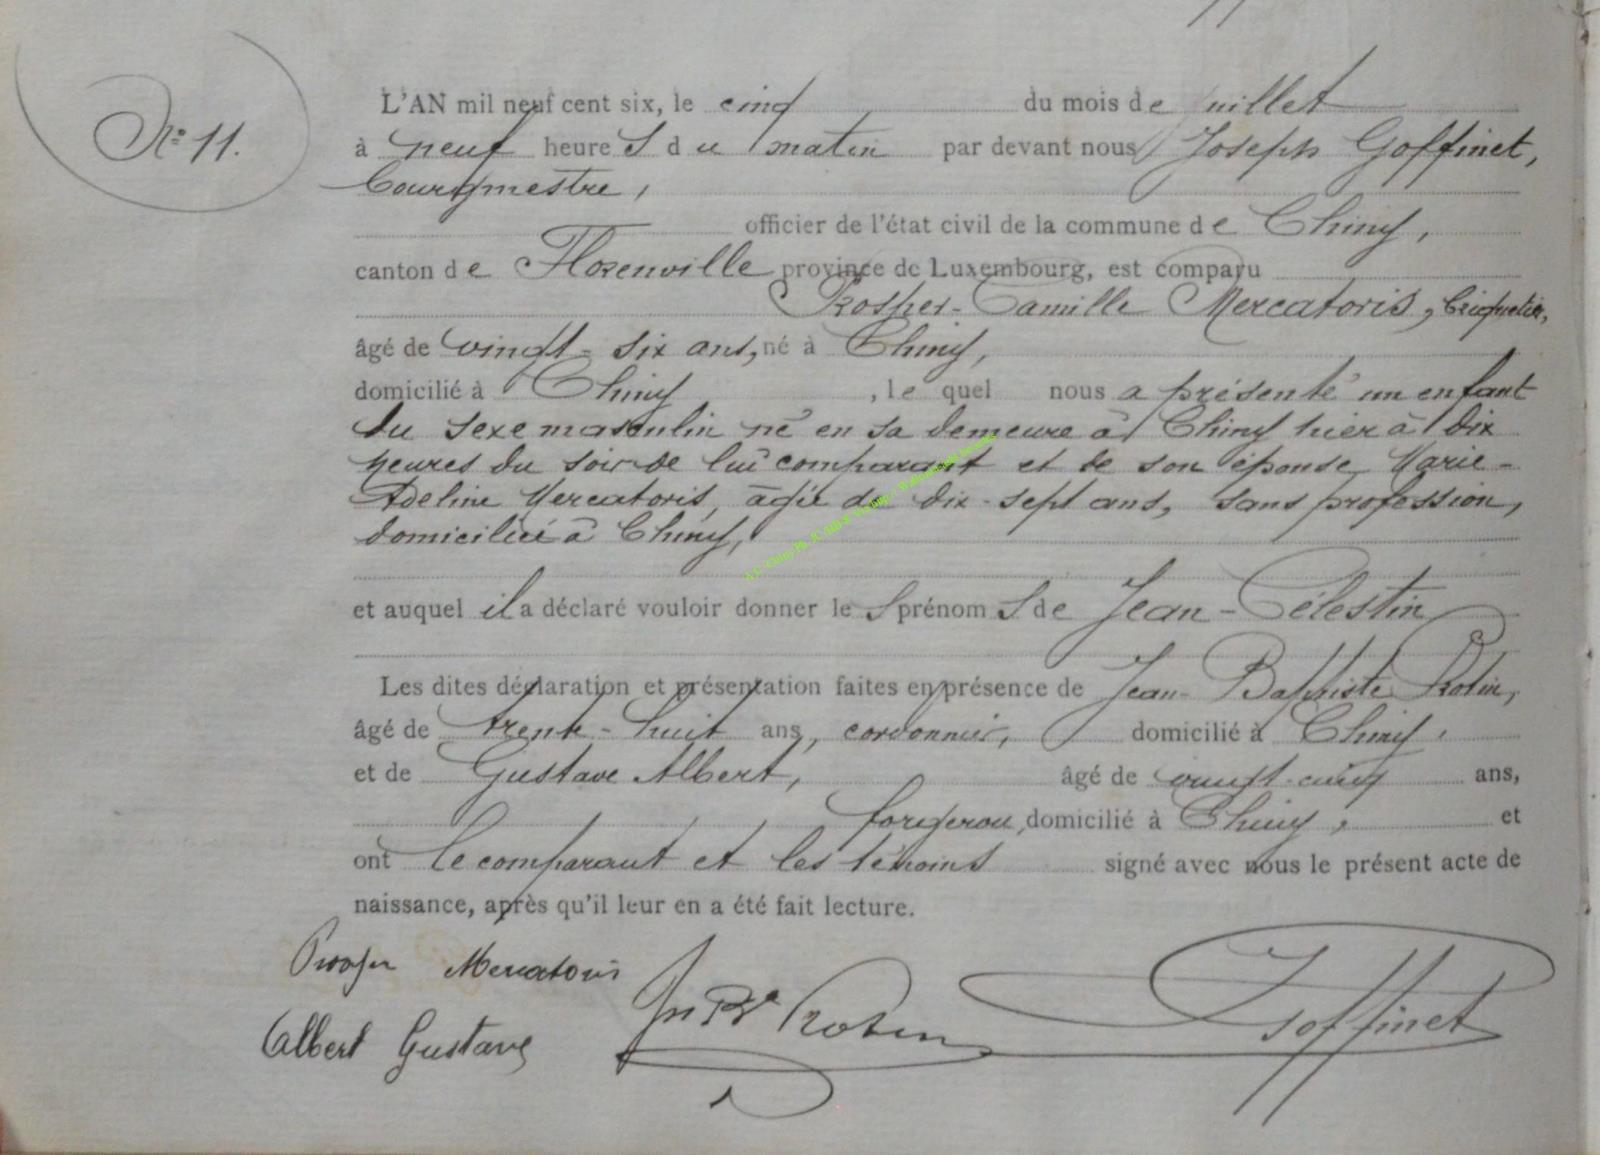 11
N° 11.
L'AN mil neuf cent six, le cinq du mois de juillet
à neuf heures du matin par devant nous Joseph Goffinet,
bourgmestre,
officier de l'état civil de la commune de Chiny,
canton de Florenville province de Luxembourg, est comparu
Prosper-Camille Mercatoris, briquetier,
âgé de vingt-six ans, né à Chiny,
domicilié à Chiny, lequel nous a présenté un enfant
du sexe masculin né en sa demeure à Chiny hier à dix
heures du soir de lui comparant et de son épouse, Marie-
Adeline Mercatoris, âgée de dix-sept ans, sans profession,
domiciliée à Chiny,
et auquel il a déclaré vouloir donner les prénoms de Jean-Célestin
Les dites déclaration et présentation faites en présence de Jean-Baptiste Robin,
âgé de trente-huit ans, cordonnier, domicilié à Chiny,
et de Gustave Albert, âgé de vingt-cinq ans,
forgeron, domicilié à Chiny, et
ont le comparant et les témoins signé avec nous le présent acte de
naissance, après qu'il leur en a été fait lecture.
Prosper Mercatoris
Jn Bte Robin
J Goffinet
Albert Gustave